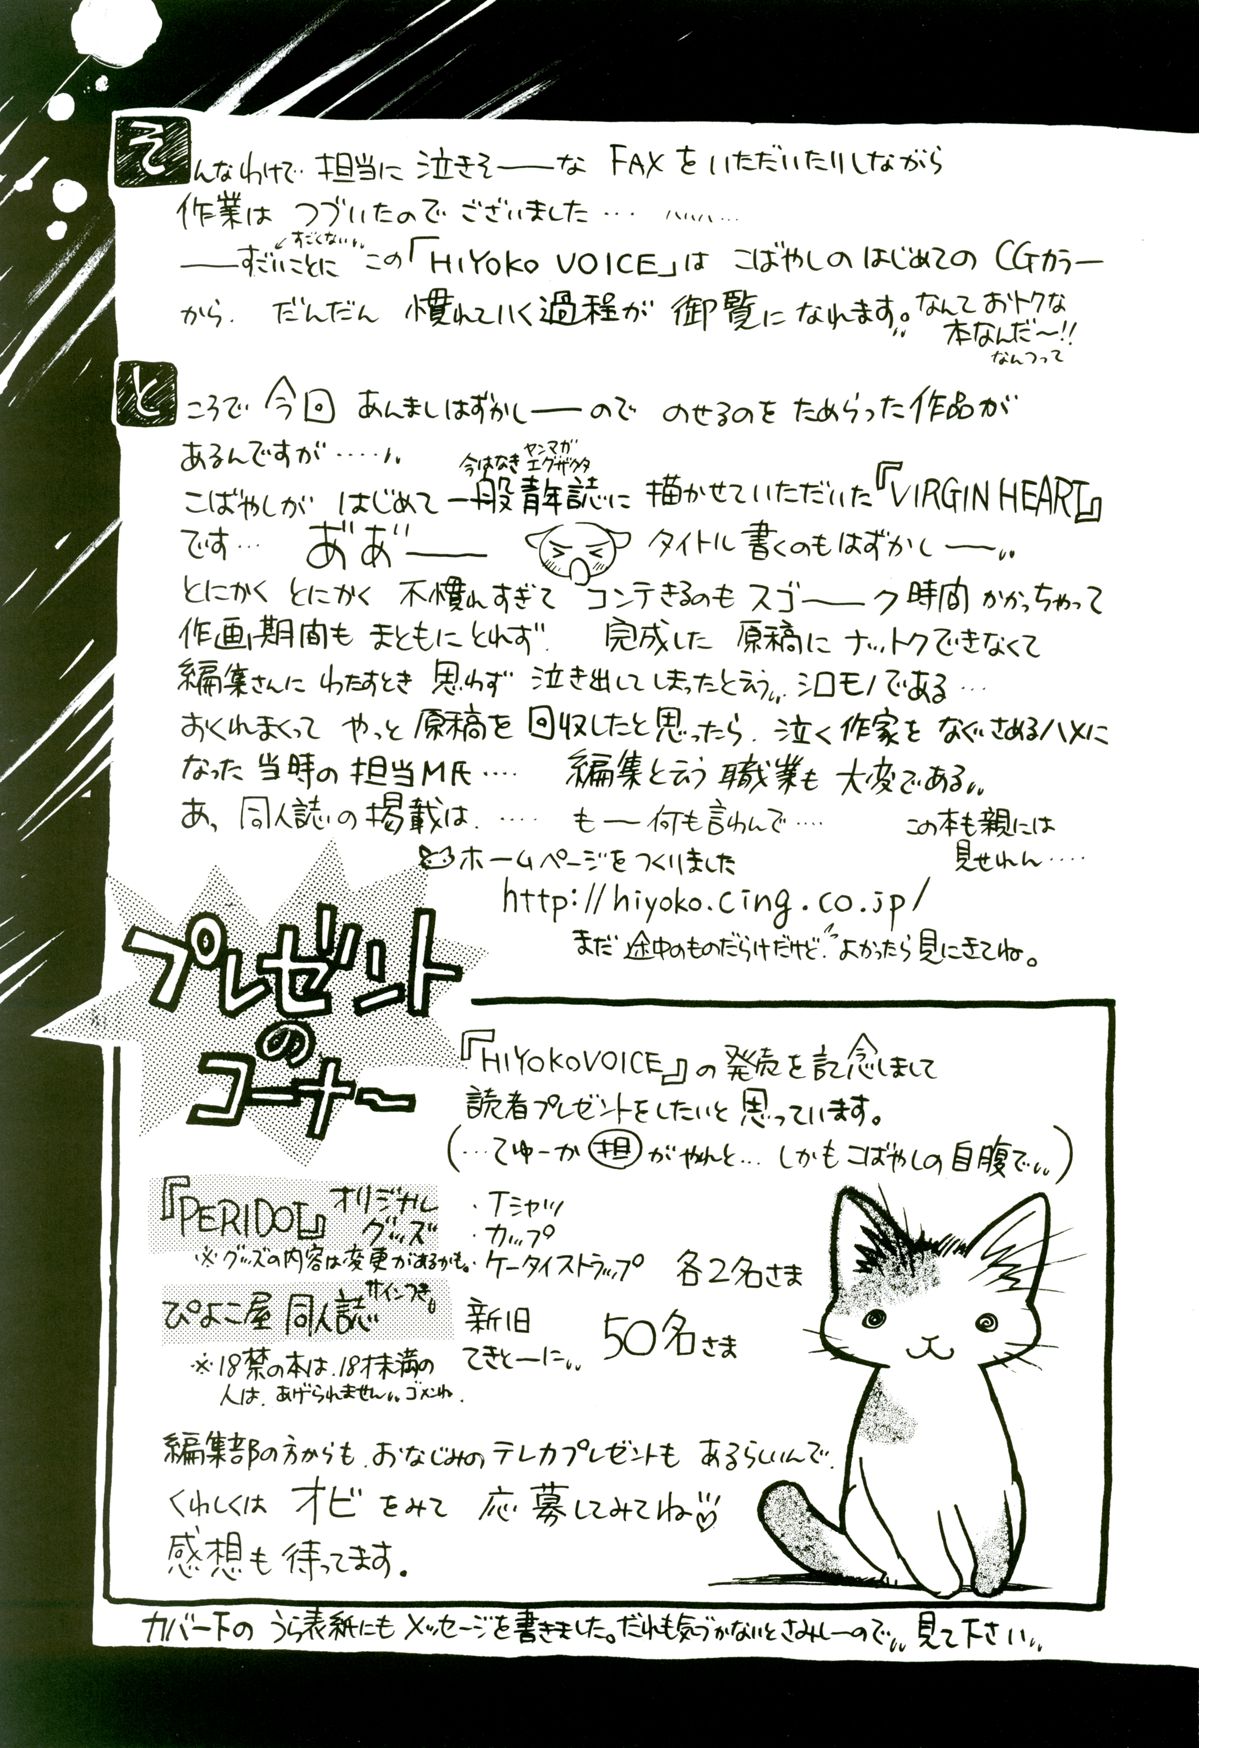 そんなわけで‥担当に泣きそ――な FAXをいただいたりしながら
作業は つづいたのでございました‥‥
すごくない
――すごいことに この「HIYOKO VOICE」は こばやしの はじめての CGカラー
から、だんだん 慣れていく過程が 御覧になれます。なんておトクな
本なんだ〜!!
なんつって
ところで 今回 あんましはずかし――ので のせるのを ためらった作品が
あるんですが‥‥‥
今はなき ヤンマガ
エグザクタ
こばやしが はじめて 一般青年誌に 描かせていただいた『VIRGIN HEART』
です‥‥ あ゛あ゛―― タイトル書くのもはずかし――
とにかく とにかく 不慣れすぎて コンテきるのも スゴ――ク 時間 かかっちゃって
作画期間も まともに とれず、 完成した 原稿に ナットクできなくて
編集さんに わたすとき 思わず 泣き出してしまったと云う シロモノである‥‥
おくれまくって やっと 原稿を 回収したと思ったら、泣く作家を なぐさめるハメに
なった 当時の 担当M氏‥‥ 編集と云う 職業も 大変である
あ、同人誌の掲載は、‥‥‥ も―何も言わんで‥‥ この本も親には
見せれん‥‥
ホームページをつくりました
http://hiyoko.cing.co.jp/
まだ 途中のものだらけだけど よかったら 見にきてね。
プレゼント
の
コーナ〜
『HIYOKOVOICE』の 発売を記念しまして
読者プレゼントをしたいと 思っています。
(‥‥てゆーか 担 がやれと… しかも こばやしの 自腹で)
『PERIDOT』オリジナル
グッズ
・Tシャツ
・カップ
・ケータイストラップ 各2名さま
※グッズの内容は変更があるかも。
ぴよこ屋 同人誌 サインつき。
新旧
てきとーに 50名さま
※18禁の本は、18才未満の
人は、あげられません ゴメンね.
編集部の方からも、おなじみの テレカプレゼントも あるらしいんで、
くわしくは オビ をみて 応募してみてね♡
感想も 待ってます。
カバー下の うら表紙にも メッセージを書きました。だれも気づかないとさみしーので 見て下さい